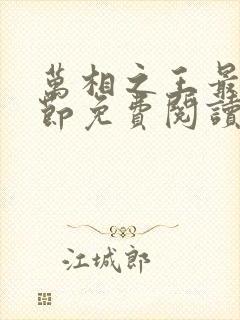 萬相之王最
節免費閱讀
江城郎